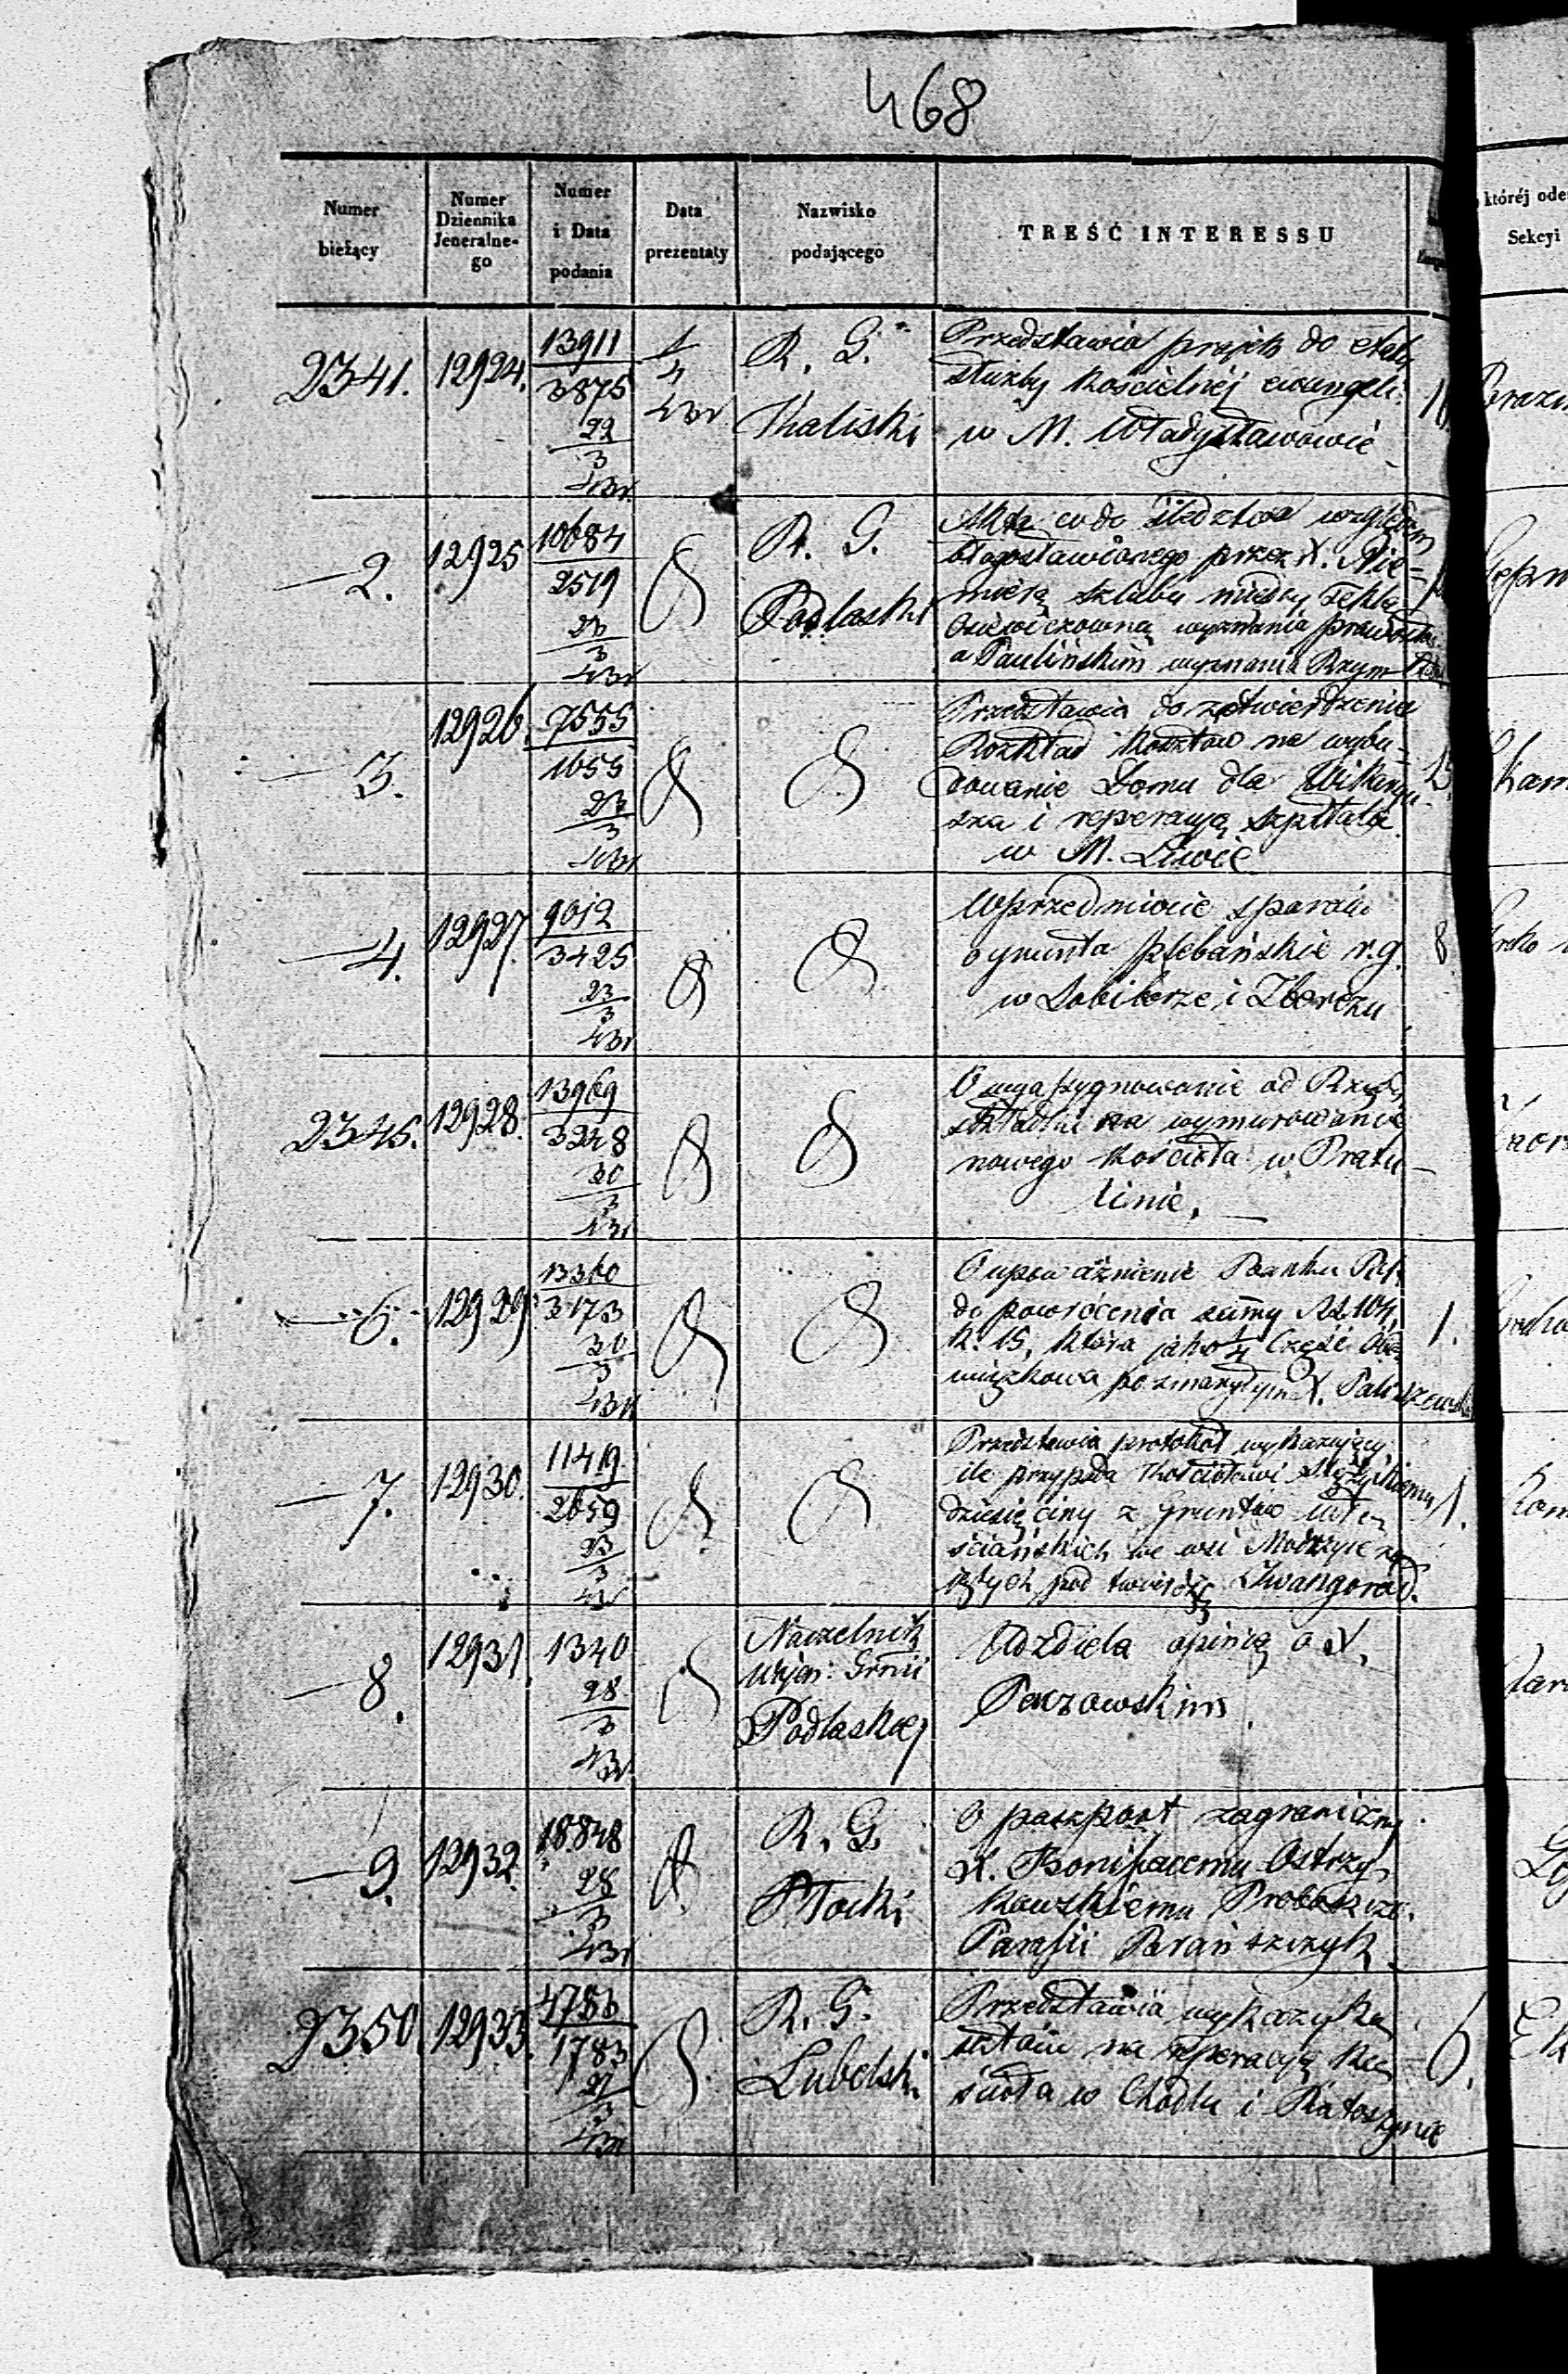 468
Numer bieżący
Numer Dziennika Jeneralne-go
Numer i Data podania
Data prezentaty
Nazwisko podającego
TREŚĆ INTERESSU
której ode
Sekcyi
2341. 12924. 13911 3875 22/3
1/4
R. G. Kaliski
Przedstawia projekt do etatu
służby kościelnéj ewangeli:
w M. Władysławowie
—2. 12925 10684 2519 23/3
R. G. Podlaski
Akta co do śledztwa względem
błogosławionego przez X. Nie=
mierę szlubu między Teklą
wyznania prawosła:
a Paulińskim wyznania Rzym
—3. 12926. 7555 1655 23/3
Przedstawia do zatwierdzenia
Rozkład kosztów na wybu-
dowanie Domu dla Wikaryu-
sza i reperacyą szpitala
w M. Liwie
—4. 12927. 9012 3425 23/3
W przedmiocie sporów
o grunta plebańskie r.g.
w Sobiborze i Zbereżu
8
2345. 12928. 13969 3228 30/3
O wyassygnowanie od Rządu
składki na wymurowanie
nowego kościoła w Pratu-
linie.
—6. 12929 13360 3173 30/3
O upoważnienie Banku Pol.
do powrócenia summy Rs. 104
k. 15, która jako część Obo
wiązkowa po zmarłym X. Paliszewski
1.
—7. 12930. 11419 2659 23/3
Przedstawia protokół wykazujący,
ile przypada kościołowi
dziesięciny z Gruntów włoś
ściańskich we wsi Modrzyce za
jętych pod twierdzę Iwangorod.
1.
—8. 12931 1340 28/3
Naczelnik
Wojen: Gbnii
Podlaskiej
Udziela opinią o X.
Paczowskim.
—9. 12932. 18848 28/3
R. G. Płocki
O paszport zagraniczny
X. Bonifacemu Ostrzy-
kowskiemu Proboszczo.
Parafii
2350. 12933. 4786 1783 27/3
R. G. Lubelski
Przedstawia wykazy ko
sztów na reperacyą ko
ścioła w Chodlu i Ratoszynie
6.